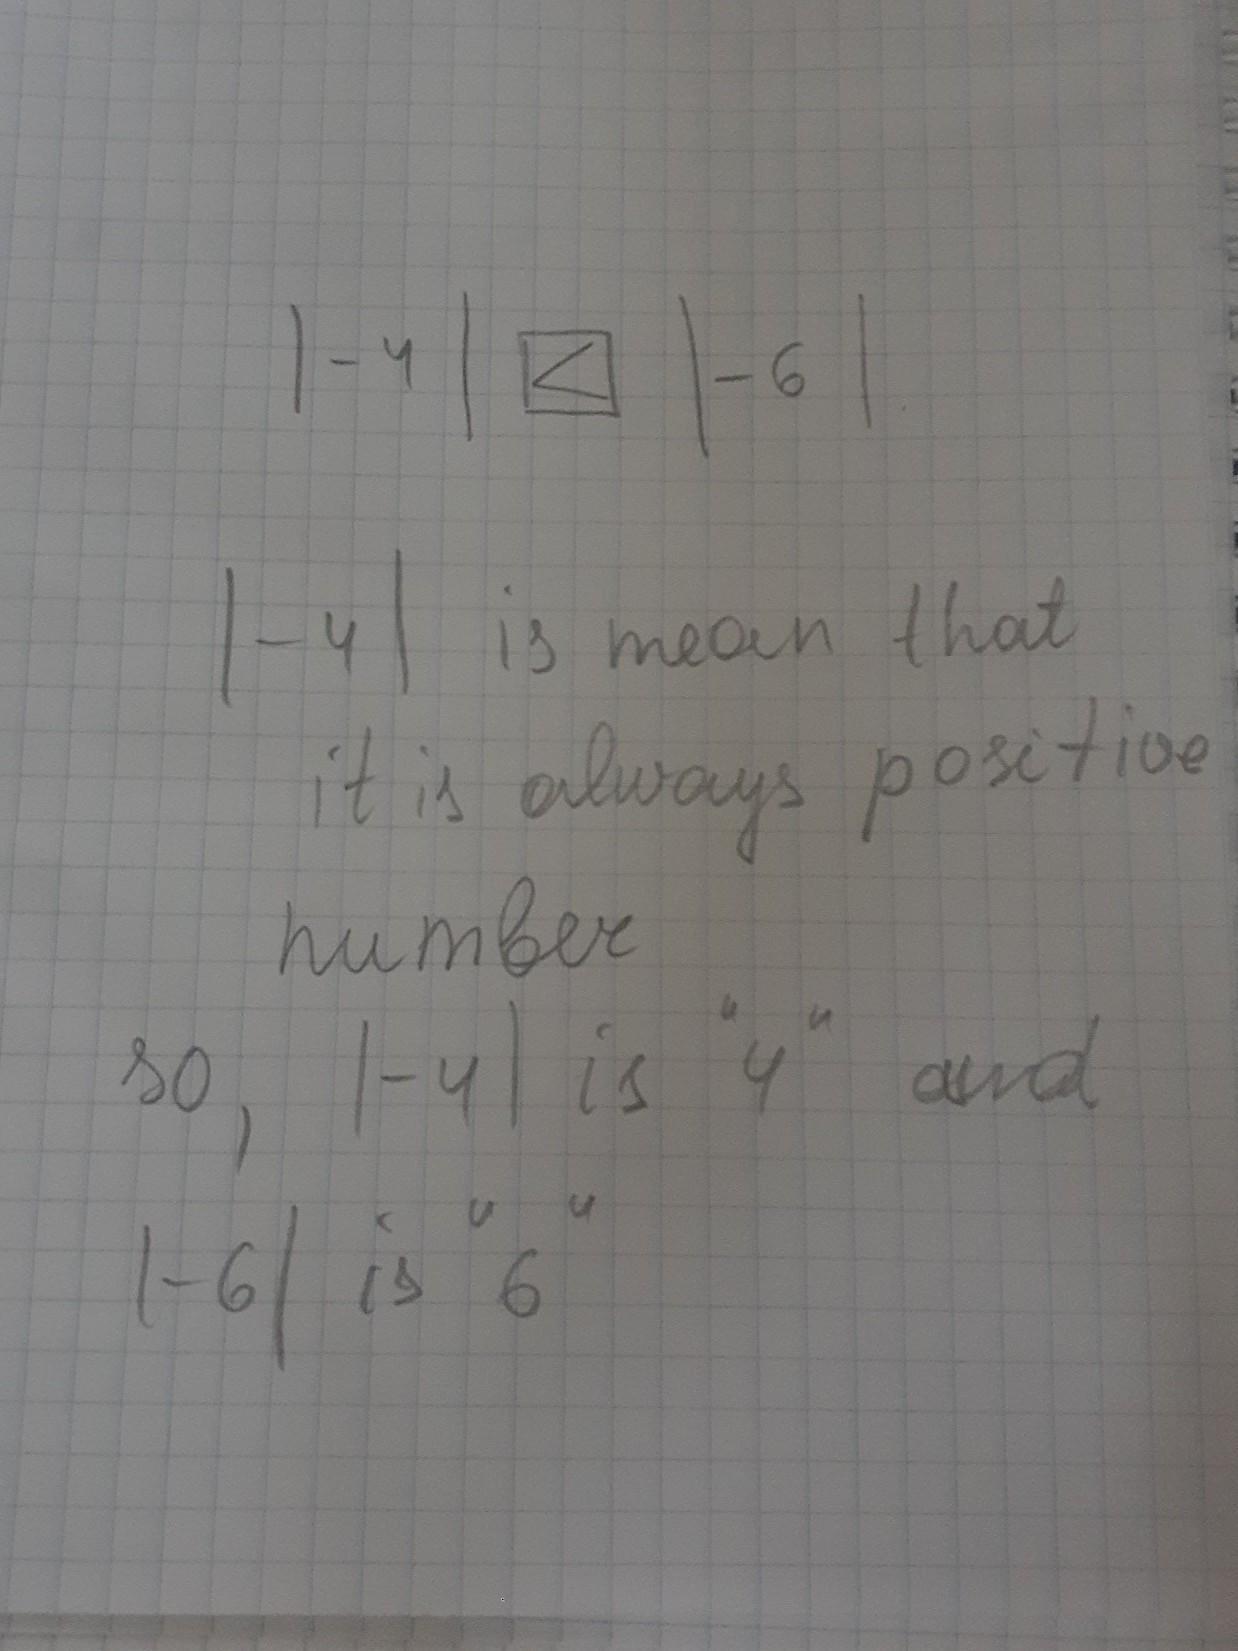 |-4| < |-6|
|-4| is mean that
it is always positive
number
so, |-4| is "4" and
|-6| is "6"